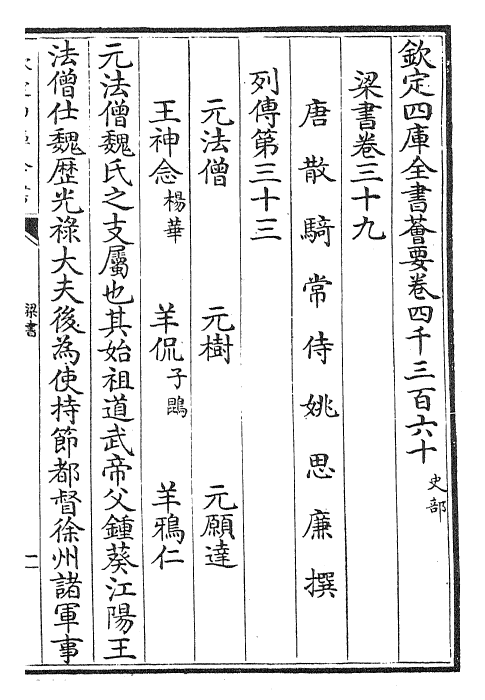 欽定四庫全書薈要卷四千三百六十 史部
梁書卷三十九
唐散騎常侍姚思廉撰
列傳第三十三
元法僧 元樹 元願達
王神念 楊華 羊侃 子鵾 羊鴉仁
元法僧魏氏之支屬也其始祖道武帝父鍾葵江陽王
法僧仕魏歷光祿大夫後為使持節都督徐州諸軍事
梁書